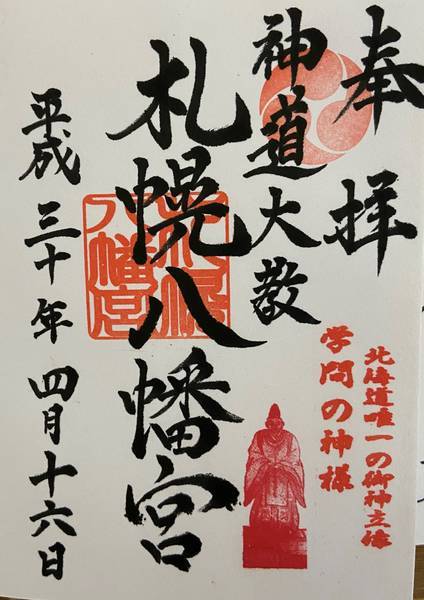 奉拝
神道大教
北海道唯一の御神立像
学問の神様
札幌八幡宮
札幌八幡宮
平成三十年四月十六日